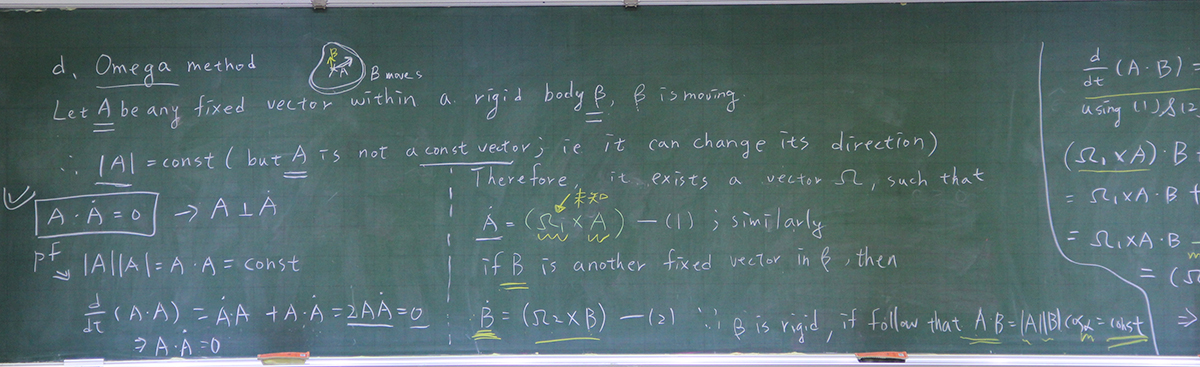 d. Omega method
B
A
B moves
Let A be any fixed vector within a rigid body β, β is moving.
∴ |A| = const (but A is not a const vector; ie it can change its direction)
A · Ȧ = 0 → A ⊥ Ȧ
pf
|A||A| = A · A = const
d/dt (A·A) = Ȧ·A + A·Ȧ = 2AȦ = 0
⇒ A·Ȧ = 0
Therefore, it exists a vector Ω, such that
未知
Ȧ = (Ω₁ × A) — (1) ; similarly
if B is another fixed vector in β, then
Ḃ = (Ω₂ × B) — (2) ∵ β is rigid, it follow that A·B = |A||B| cosα = const
d/dt (A·B) =
using (1) & (2
(Ω₁ × A) · B
= Ω₁ × A · B +
= Ω₁ × A · B -
= (Ω
⇒